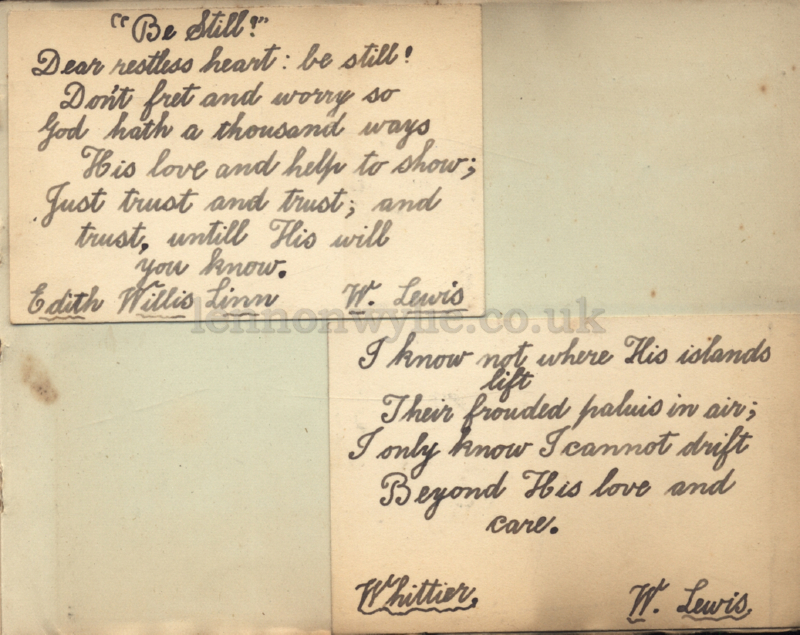 "Be Still!"
Dear restless heart: be still!
Don't fret and worry so
God hath a thousand ways
His love and help to show;
Just trust and trust; and
trust, untill His will
you know.
Edith Willis Linn W. Lewis
lennonwylie.co.uk
I know not where His islands
lift
Their frouded paluis in air;
I only know I cannot drift
Beyond His love and
care.
Whittier, W. Lewis,